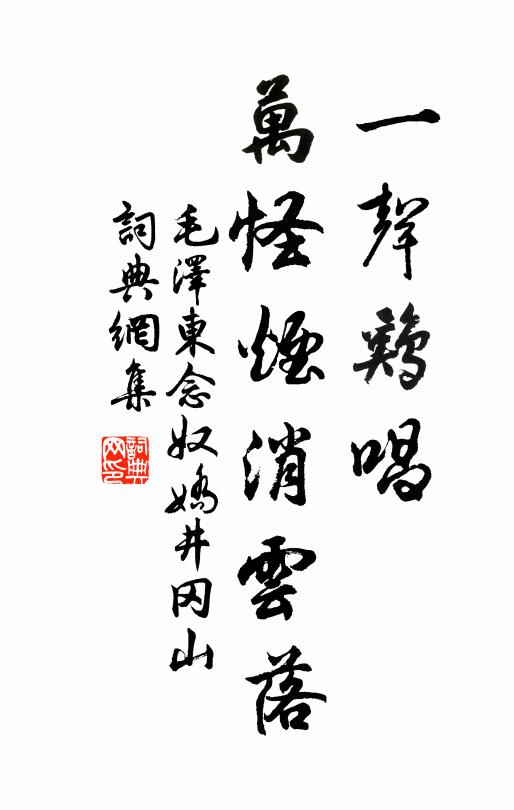 一聲鷄唱
萬怪煙消雲落
毛澤東念奴嬌井冈山
詞典網集
詞典网印